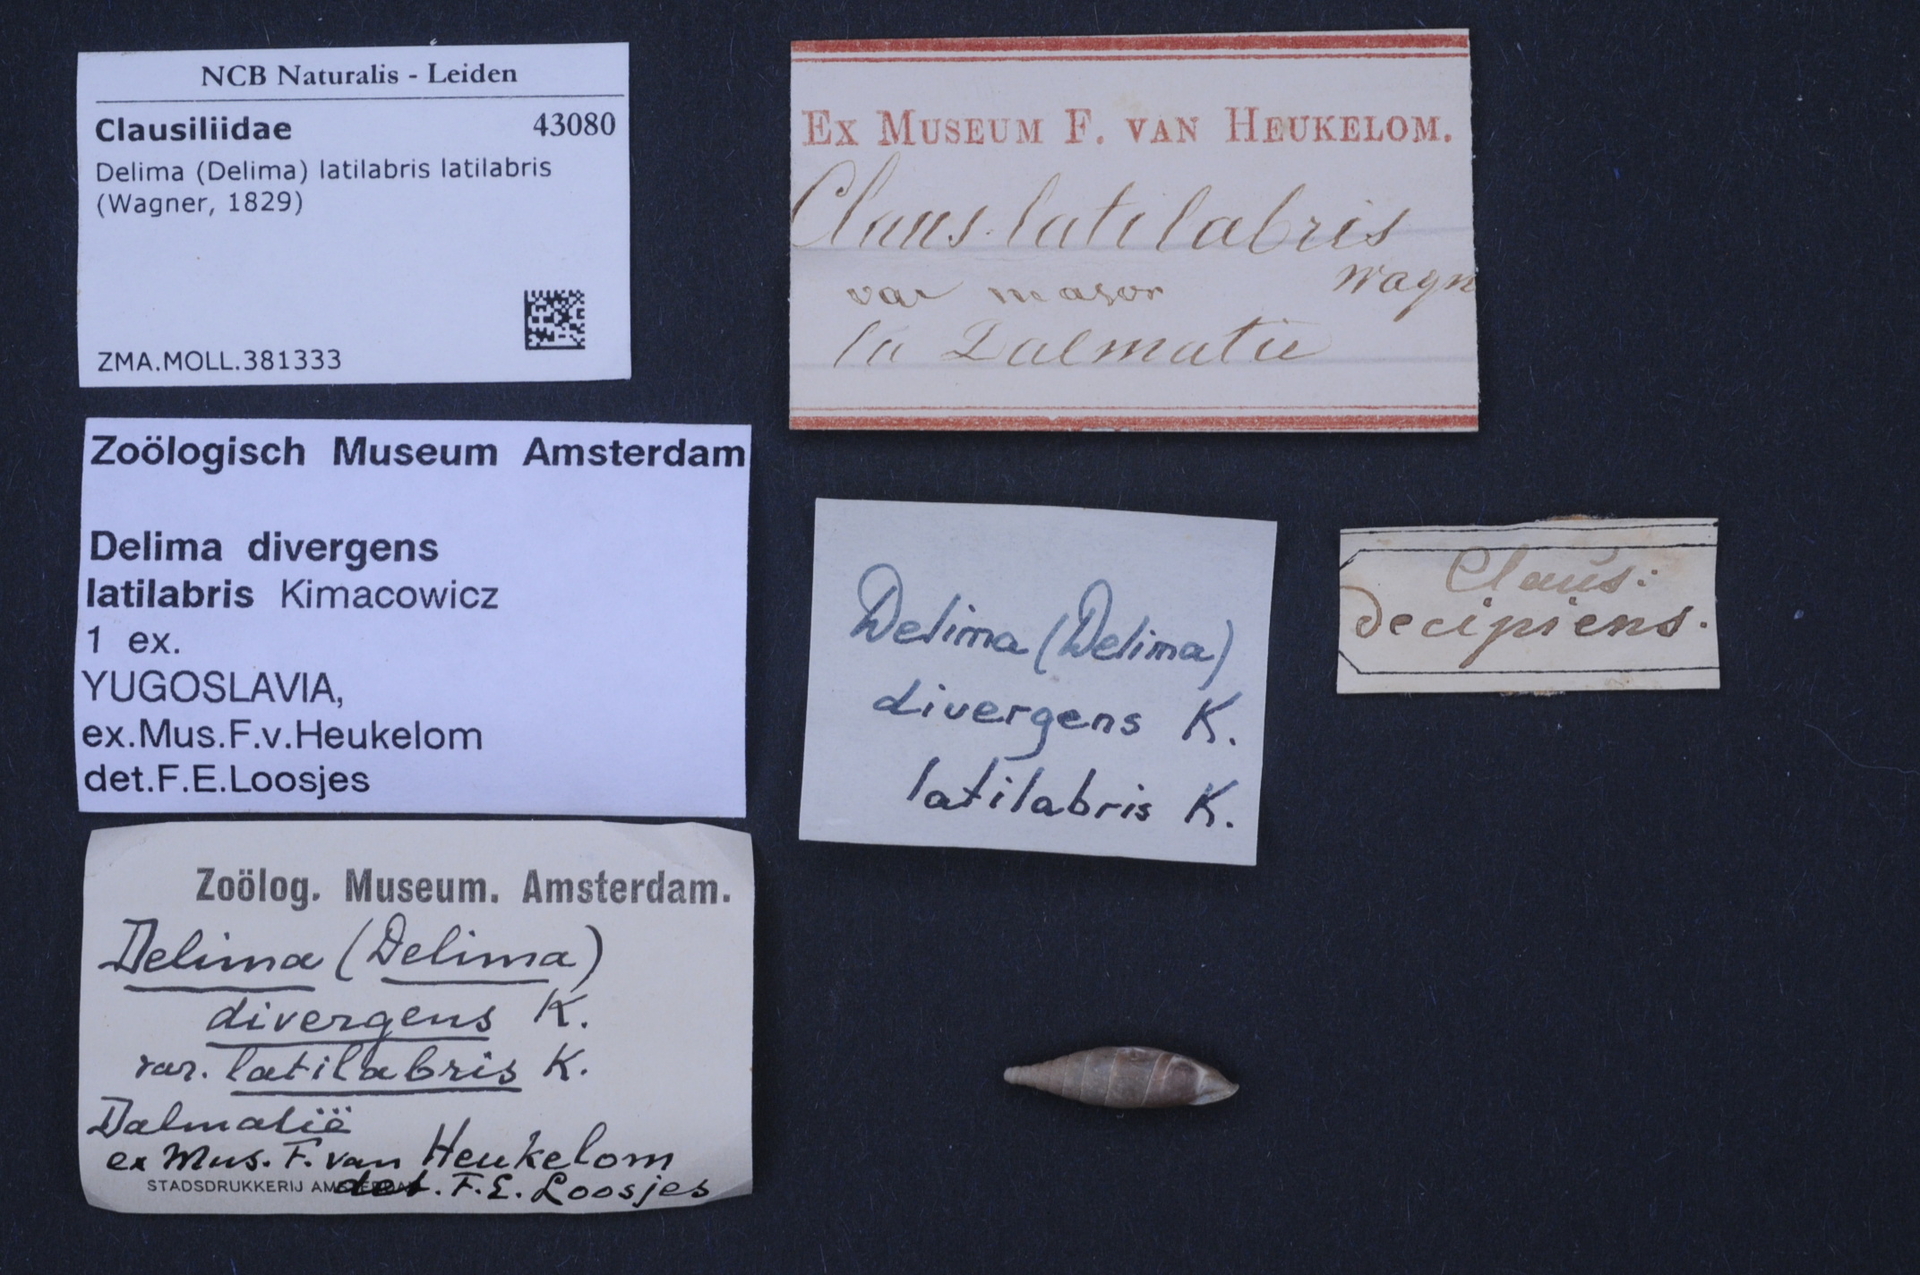 NCB Naturalis - Leiden
Clausiliidae 43080
Delima (Delima) latilabris latilabris
(Wagner, 1829)
ZMA.MOLL.381333
Ex Museum F. van Heukelom.
Claus. latilabris
Wagn
var major
la Dalmatie
Zoölogisch Museum Amsterdam
Delima divergens
latilabris Kimacowicz
1 ex.
YUGOSLAVIA,
ex.Mus.F.v.Heukelom
det.F.E.Loosjes
Delima (Delima)
divergens K.
latilabris K.
Claus:
decipiens.
Zoölog. Museum. Amsterdam.
Delima (Delima)
divergens K.
var. latilabris K.
Dalmatië
ex Mus. F. van Heukelom
det. F.E. Loosjes
STADSDRUKKERIJ AMSTERDAM